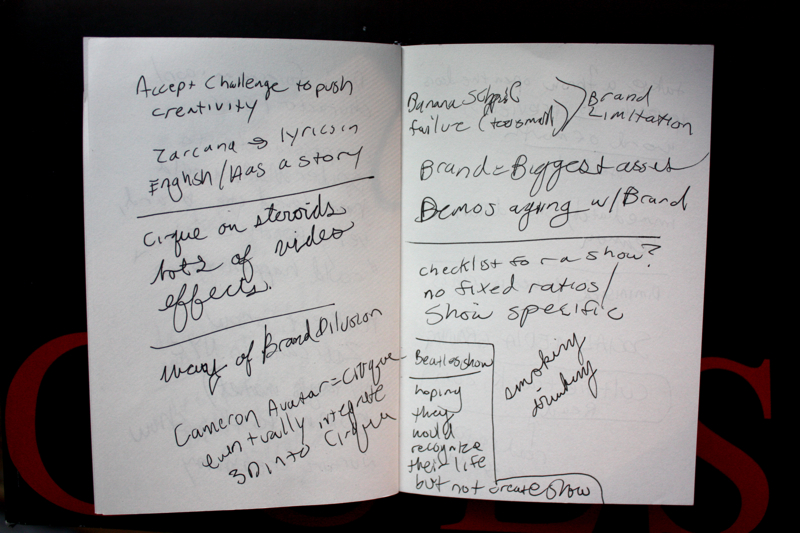 Accept Challenge to push
creativity
Zarcana → lyrics in
English/Has a story
Cirque on steroids
lots of video
effects.
wary of Brand Dilusion
Cameron Avatar = Cirque
eventually integrate
3D into Cirque
Banana
failure (too small)
Brand
Limitation
Brand = Biggest asset
Demos aging w/ Brand
checklist for a show?
no fixed ratios/
Show specific
smoking
drinking
Beatles show
hoping
they
would
recognize
their life
but not create show